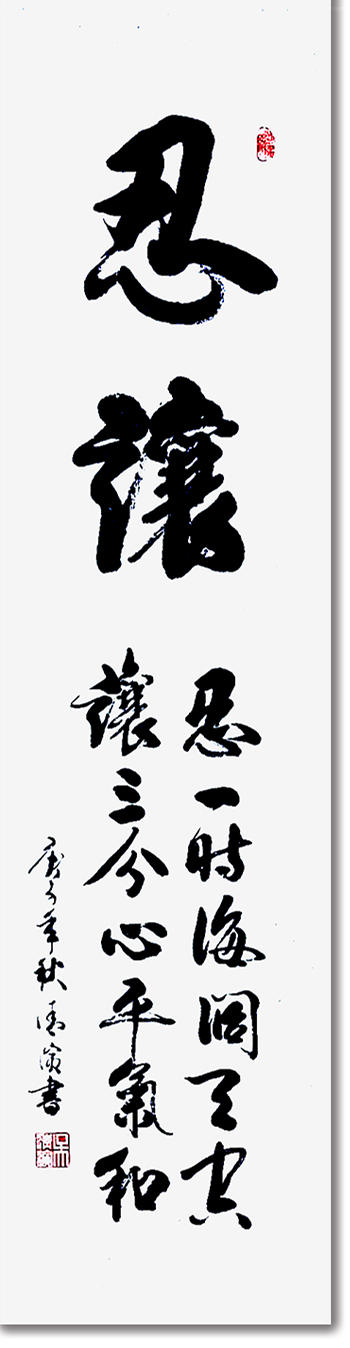 忍讓
忍一时海阔天空
讓三分心平氣和
庚子年秋書